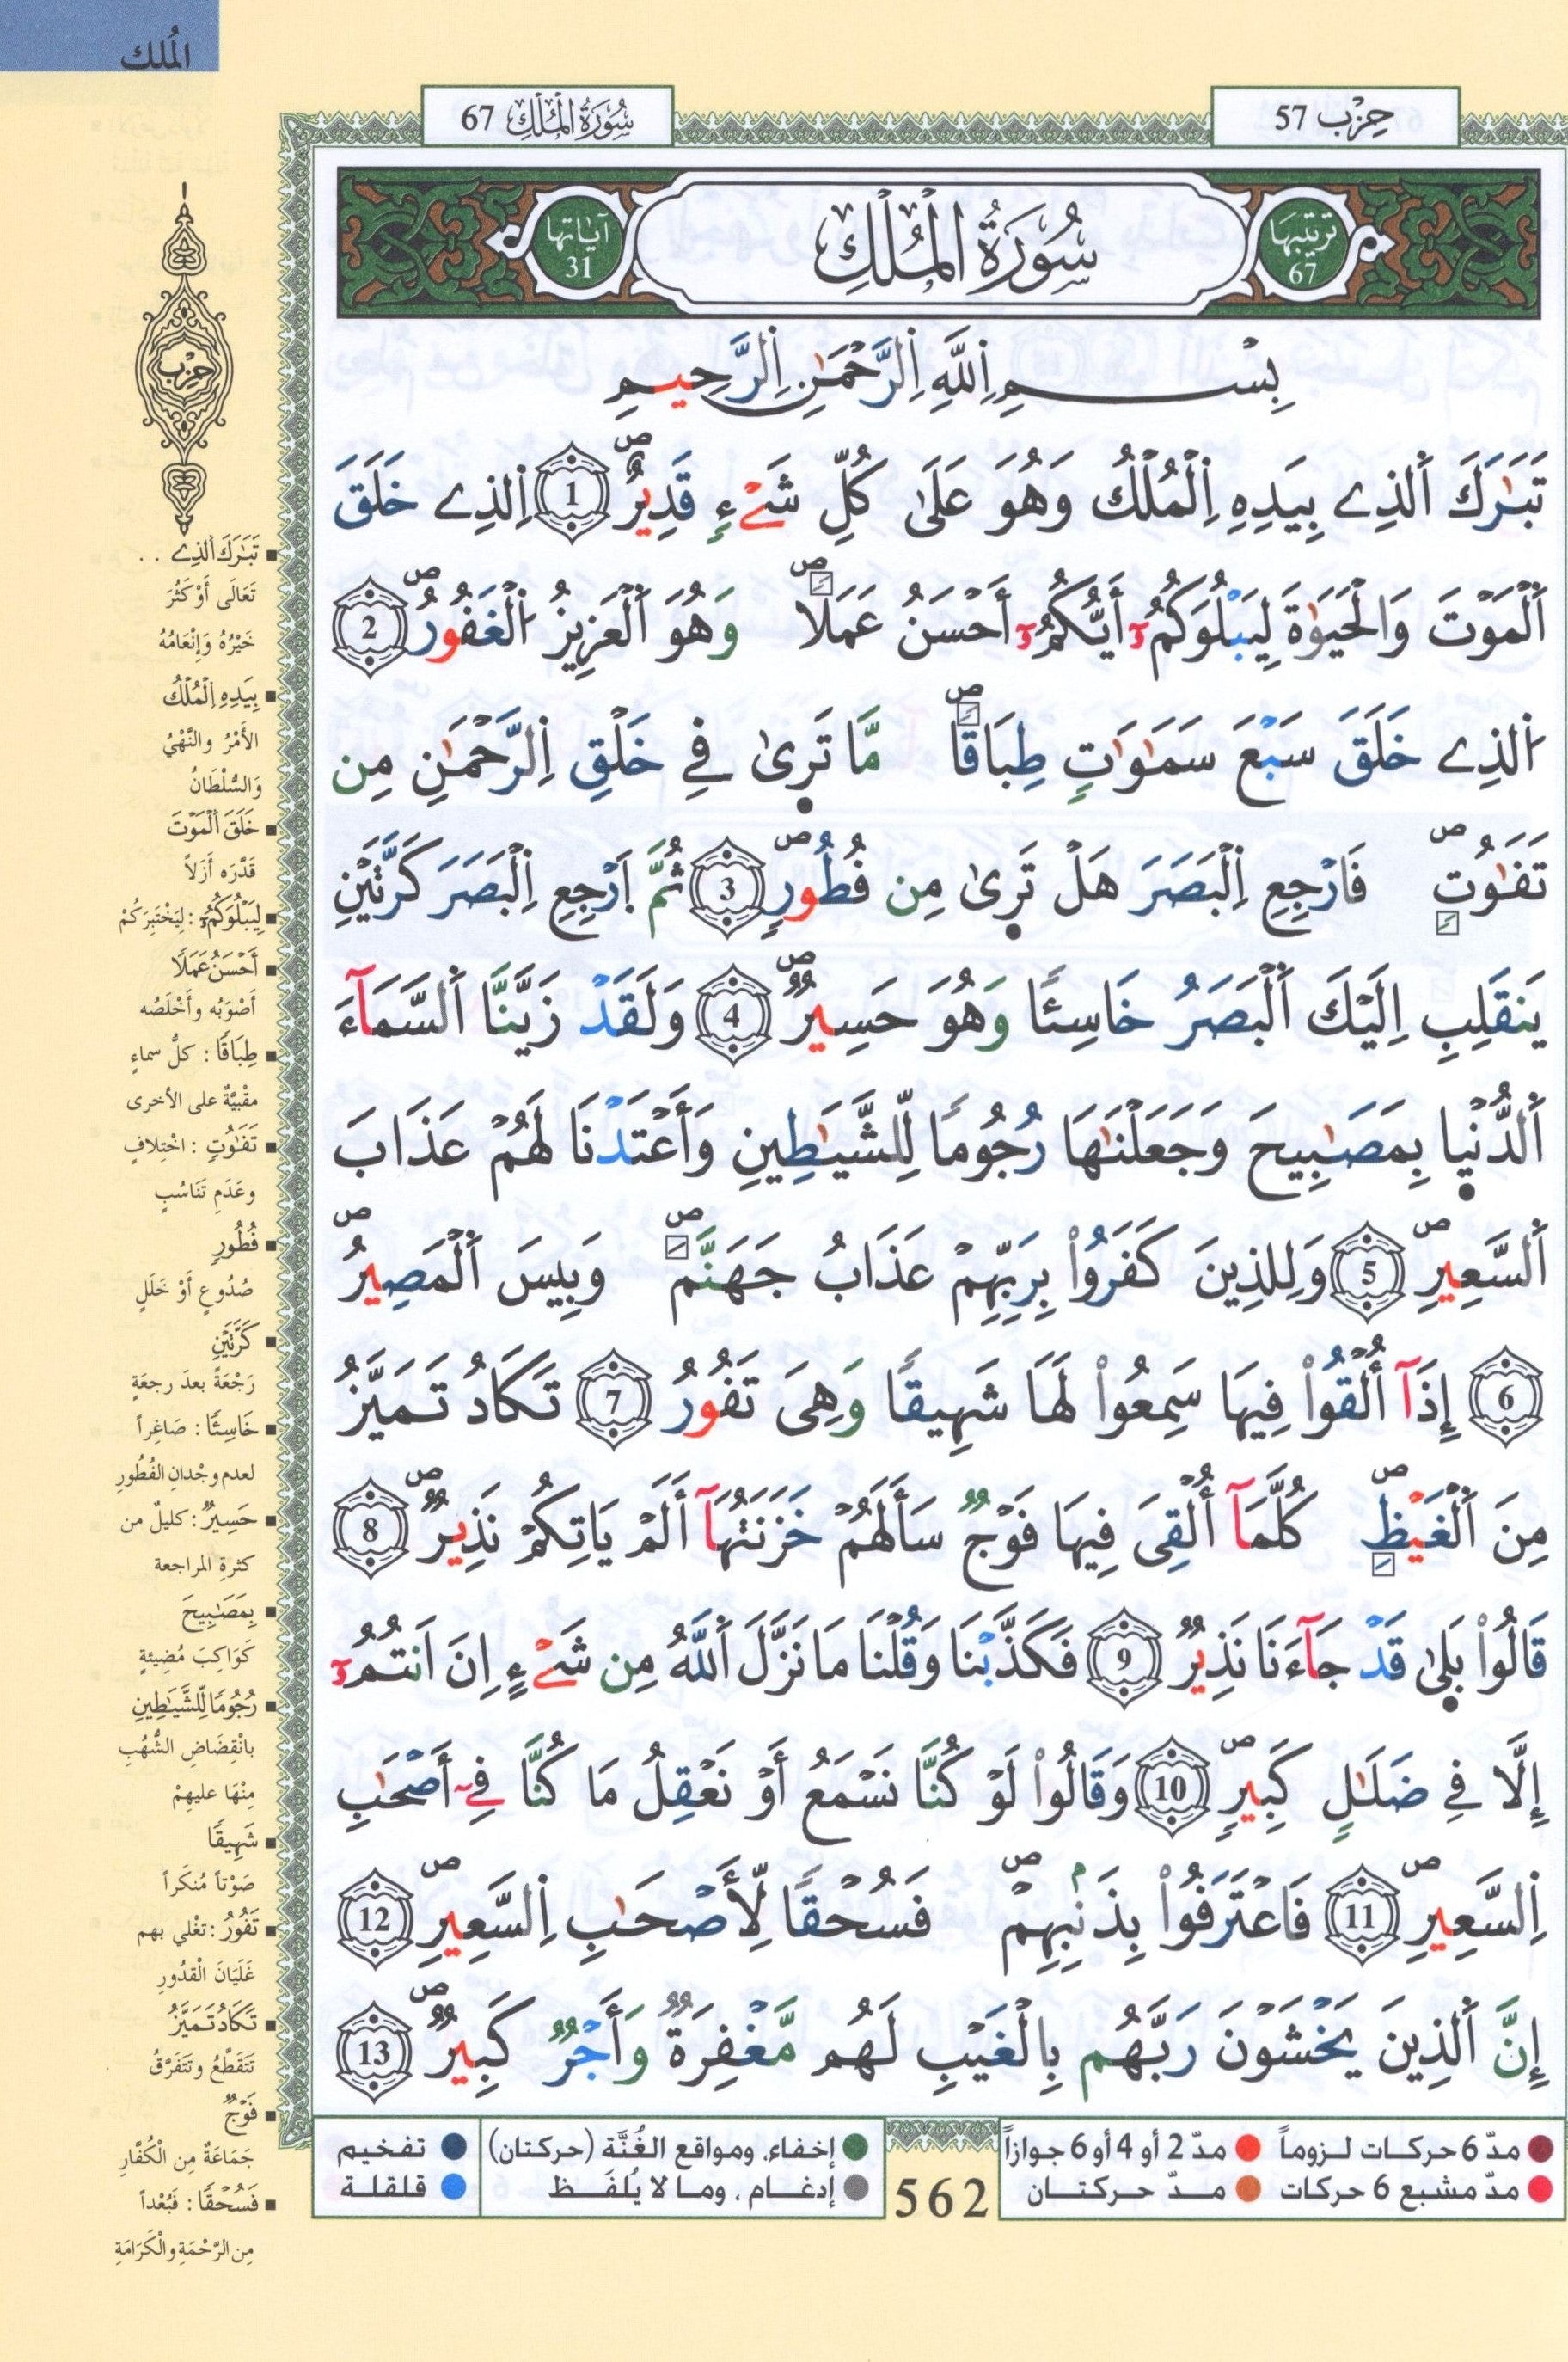 المُلك
حِزْب 57
سُورَةُ الْمُلْكِ 67
تَرتيبُهَا 67
سُورَةُ الْمُلْكِ
آيَاتُهَا 31
بِسْمِ اِ۬للَّهِ اِ۬لرَّحْمَٰنِ اِ۬لرَّحِيمِ
تَبَٰرَكَ اَ۬لذِے بِيَدِهِ اِ۬لْمُلْكُ وَهُوَ عَلَىٰ كُلِّ شَےْءٖ قَدِيرٌۖ 1 اِ۬لذِے خَلَقَ
اَ۬لْمَوْتَ وَالْحَيَوٰةَ لِيَبْلُوَكُمُۥٓ أَيُّكُمُۥٓ أَحْسَنُ عَمَلاٗۖ وَهُوَ اَ۬لْعَزِيزُ اُ۬لْغَفُورُۖ 2
اُ۬لذِے خَلَقَ سَبْعَ سَمَٰوَٰتٖ طِبَاقاٗۖ مَّا تَرٜىٰ فِے خَلْقِ اِ۬لرَّحْمَٰنِ مِن
تَفَٰوُتٖۖ فَارْجِعِ اِ۬لْبَصَرَ هَلْ تَرٜىٰ مِن فُطُورٖۖ 3 ثُمَّ اَ۪رْجِعِ اِ۬لْبَصَرَ كَرَّتَيْنِ
يَنقَلِبِ اِلَيْكَ اَ۬لْبَصَرُ خَاسِئاٗ وَهُوَ حَسِيرٞۖ 4 وَلَقَدْ زَيَّنَّا اَ۬لسَّمَآءَ
اَ۬لدُّنْيٜا بِمَصَٰبِيحَ وَجَعَلْنَٰهَا رُجُوماٗ لِّلشَّيَٰطِينِ وَأَعْتَدْنَا لَهُمْ عَذَابَ
اَ۬لسَّعِيرِۖ 5 وَلِلذِينَ كَفَرُواْ بِرَبِّهِمْ عَذَابُ جَهَنَّمَۖ وَبِيسَ اَ۬لْمَصِيرُۖ
6 إِذَآ أُلْقُواْ فِيهَا سَمِعُواْ لَهَا شَهِيقاٗ وَهِىَ تَفُورُ 7 تَكَادُ تَمَيَّزُ
مِنَ اَ۬لْغَيْظِۖ كُلَّمَآ أُلْقِىَ فِيهَا فَوْجٞ سَأَلَهُمْ خَزَنَتُهَآ أَلَمْ يَاتِكُمْ نَذِيرٞۖ 8
قَالُواْ بَلٜىٰ قَدْ جَآءَنَا نَذِيرٞ 9 فَكَذَّبْنَا وَقُلْنَا مَا نَزَّلَ اَ۬للَّهُ مِن شَےْءٍ اِنَ اَنتُمُۥٓ
إِلَّا فِے ضَلَٰلٖ كَبِيرٖۖ 10 وَقَالُواْ لَوْ كُنَّا نَسْمَعُ أَوْ نَعْقِلُ مَا كُنَّا فِےٓ أَصْحَٰبِ
اِ۬لسَّعِيرِۖ 11 فَاعْتَرَفُواْ بِذَنۢبِهِمْۖ فَسُحْقاٗ لِّأَصْحَٰبِ اِ۬لسَّعِيرِۖ 12
إِنَّ اَ۬لذِينَ يَخْشَوْنَ رَبَّهُم بِالْغَيْبِ لَهُم مَّغْفِرَةٞ وَأَجْرٞ كَبِيرٞۖ 13
حِزْب
تَبَٰرَكَ اَ۬لذِے ..
تَعَالَى أَوْ كَثُرَ
خَيْرُهُ وَإِنْعَامُهُ
بِيَدِهِ اِ۬لْمُلْكُ
الأَمْرُ والنَّهْيُ
وَالسُّلْطَانُ
خَلَقَ اَ۬لْمَوْتَ
قَدَّرَه أَزَلاً
لِيَبْلُوَكُمُۥ : لِيَخْتَبِرَكُمْ
أَحْسَنُ عَمَلاٗ
أَصْوَبُه وأَخْلَصُه
طِبَاقاٗ : كلُّ سماءٍ
مقْبيَّةٌ على الأخرى
تَفَٰوُتٖ : اخْتِلافٍ
وعَدَمِ تَنَاسُبٍ
فُطُورٖ
صُدُوعٍ أَوْ خَلَلٍ
كَرَّتَيْنِ
رَجْعَةً بعدَ رجعَةٍ
خَاسِئاٗ : صَاغِراً
لعدم وجْدانِ الفُطُورِ
حَسِيرٞ : كليلٌ من
كثرةِ المراجعة
بِمَصَٰبِيحَ
كَوَاكِبَ مُضِيئةٍ
رُجُوماٗ لِّلشَّيَٰطِينِ
بانْقِضَاضِ الشُّهُبِ
مِنْهَا عليهِمْ
شَهِيقاٗ
صَوْتاً مُنكَراً
تَفُورُ : تغْلي بهم
غَلَيَانَ الْقدُورِ
تَكَادُ تَمَيَّزُ
تَتَقَطَّعُ وتَتَفَرَّقُ
فَوْجٞ
جَمَاعَةٌ مِن الْكُفَّارِ
فَسُحْقاٗ : فَبُعْداً
مِن الرَّحْمَةِ والْكَرَامَةِ
مدّ 6 حركات لـزوماً مدّ 2 أو 4 أو 6 جوازاً
مدّ مشبع 6 حركات مـدّ حـركتـان
562
إخفاء، ومواقع الغُنَّة (حركتان) تفخيم
إدغـام ، ومـا لا يُلفَـظ قلقلـة